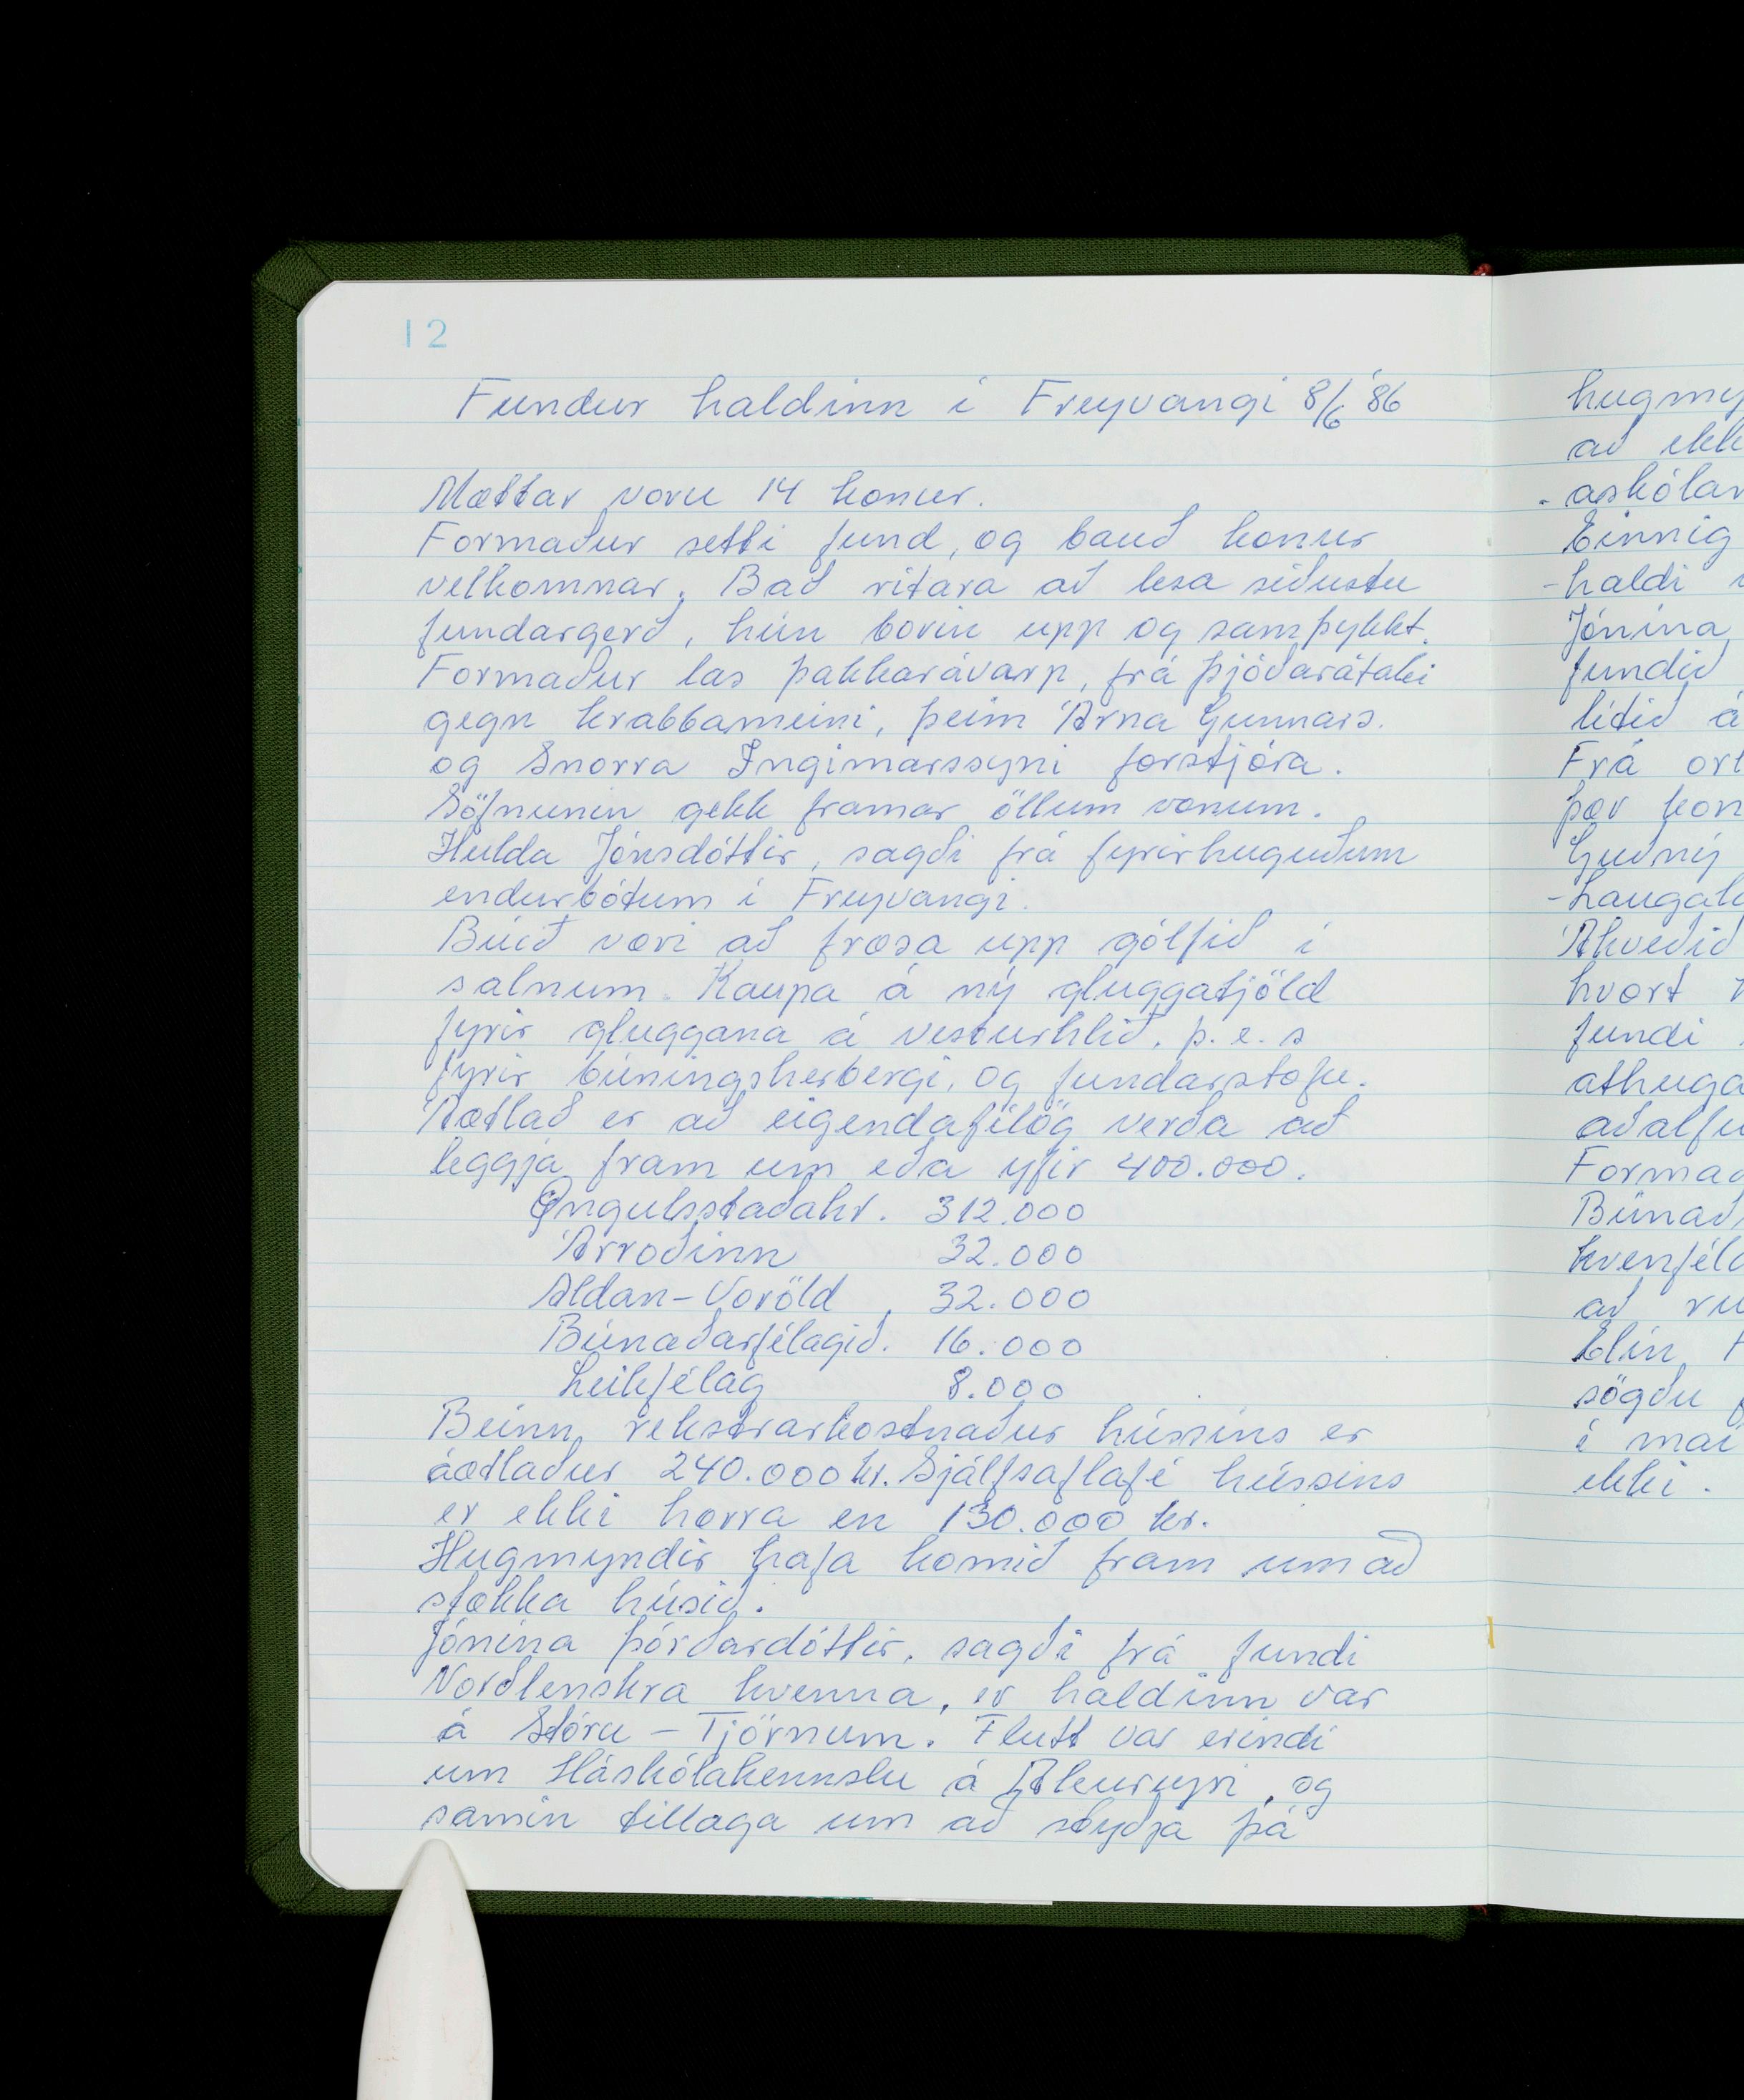 12
Fundur haldinn í Freyvangi 8/6 '86
Mættar voru 14 konur.
Formaður setti fund, og bauð konur
velkomnar. Bað ritara að lesa síðustu
fundargerð, hún borin upp og samþykkt.
Formaður las þakkarávarp, frá þjóðarátaki
gegn krabbameini, þeim Árna Gunnars.
og Snorra Ingimarssyni forstjóra.
Söfnunin gekk framar öllum vonum.
Hulda Jónsdóttir, sagði frá fyrirhuguðum
endurbótum í Freyvangi.
Búið væri að fræsa upp gólfið í
salnum. Kaupa á ný gluggatjöld
fyrir gluggana á vesturhlið, þ.e.s
fyrir búningsherbergi, og fundarstofu.
Áætlað er að eigendafélög verða að
leggja fram um eða yfir 400.000.
Öngulsstaðahr. 312.000
Árroðinn 32.000
Aldan-Voröld, 32.000
Búnaðarfélagið. 16.000
Leikfélag 8.000
Beinn, rekstrarkostnaður hússins er
áætlaður 240.000 kr. Sjálfsaflafé hússins
er ekki hærra en 130.000 kr.
Hugmyndir hafa komið fram um að
stækka húsið.
Jónína Þórðardóttir, sagði frá fundi
Norðlenskra kvenna, er haldinn var
á Stóru-Tjörnum. Flutt var erindi
um Háskólakennslu á Akureyri, og
samin tillaga um að styðja þá
hugmy
að ekk
-askólan
Einnig
-haldi
Jónína
fundið
litið á
Frá orl
þær kon
Guðný
-haugala
Ákveðið
hvort
fundi
athuga
aðalfu
Formað
Búnað
kvenféla
að ru
Elín
sögðu
í maí
ekki.